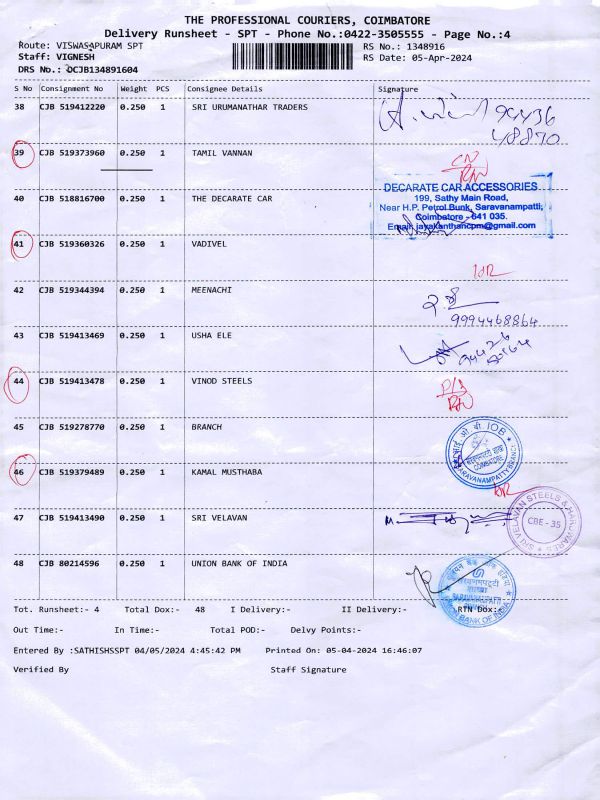 THE PROFESSIONAL COURIERS, COIMBATORE
Delivery Runsheet - SPT - Phone No.:0422-3505555 - Page No.:4
Route: VISWASAPURAM SPT
RS No.: 1348916
Staff: VIGNESH
RS Date: 05-Apr-2024
DRS No.: OCJB134891604
S No Consignment No Weight PCS Consignee Details Signature
38 CJB 519412220 0.250 1 SRI URUMANATHAR TRADERS
99436
48870
39 CJB 519373960 0.250 1 TAMIL VANNAN
RN
DECARATE CAR ACCESSORIES
199, Sathy Main Road,
Near H.P. Petrol Bunk, Saravanampatti,
Coimbatore - 641 035.
Email: jayakanthancpm@gmail.com
40 CJB 518816700 0.250 1 THE DECARATE CAR
41 CJB 519360326 0.250 1 VADIVEL
42 CJB 519344394 0.250 1 MEENACHI
9994468864
43 CJB 519413469 0.250 1 USHA ELE
44 CJB 519413478 0.250 1 VINOD STEELS
RN
45 CJB 519278770 0.250 1 BRANCH
IOB
COIMBATORE
SARAVANAMPATTY BRANCH
46 CJB 519379489 0.250 1 KAMAL MUSTHABA
47 CJB 519413490 0.250 1 SRI VELAVAN
SRI VELAVAN STEELS & HARDWARES
CBE - 35
48 CJB 80214596 0.250 1 UNION BANK OF INDIA
शाखा
UNION BANK OF INDIA
Tot. Runsheet:- 4 Total Dox:- 48 I Delivery:- II Delivery:- RTN Dox:-
Out Time:- In Time:- Total POD:- Delvy Points:-
Entered By :SATHISHSSPT 04/05/2024 4:45:42 PM Printed On: 05-04-2024 16:46:07
Verified By Staff Signature